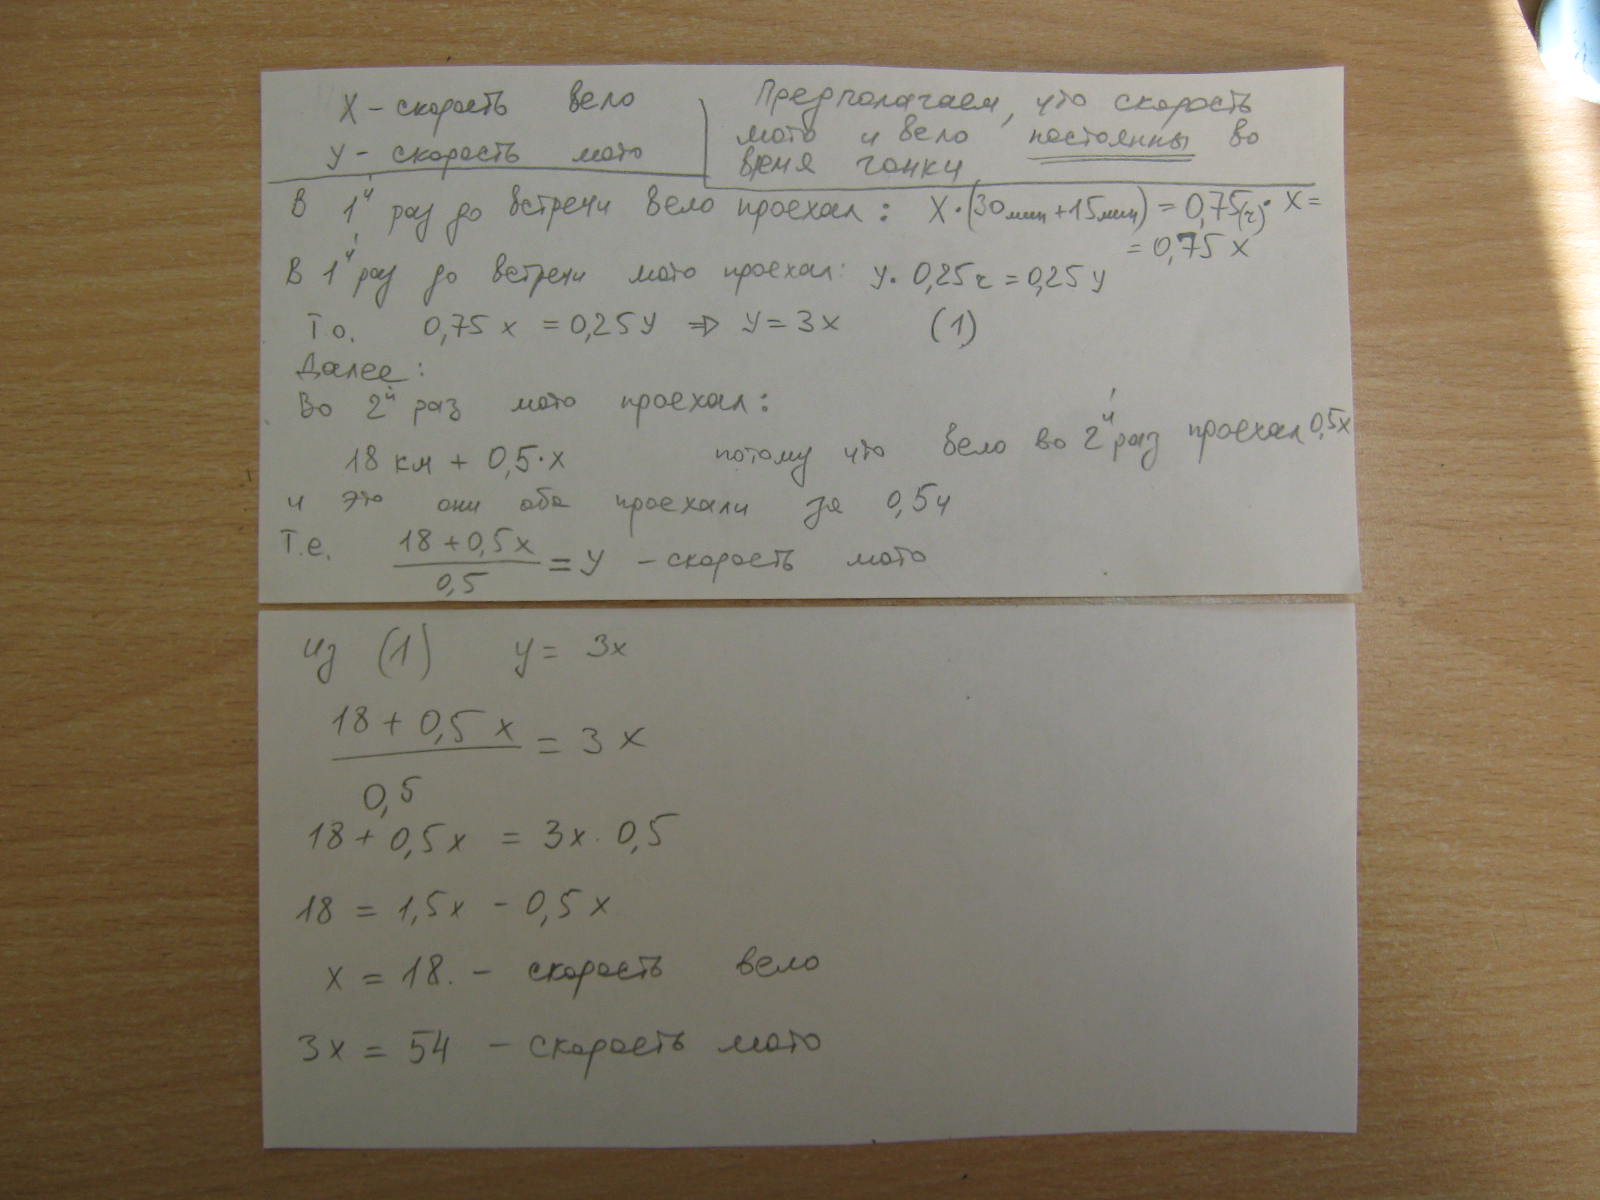 X - скорость вело
У - скорость мото
Предполагаем, что скорость
мото и вело постоянны во
время гонки
В 1й раз до встречи вело проехал: X·(30мин+15мин) = 0,75(ч)· X =
= 0,75 X
В 1й раз до встречи мото проехал: У· 0,25ч = 0,25 У
Т.о. 0,75 x = 0,25У ⇒ У = 3x (1)
Далее:
Во 2й раз мото проехал:
18 км + 0,5·x потому что вело во 2й раз проехал 0,5x
и это они оба проехали за 0,5ч
Т.е. (18 + 0,5x)/0,5 = У - скорость мото
Из (1) У = 3x
(18 + 0,5 x)/0,5 = 3 x
18 + 0,5x = 3x · 0,5
18 = 1,5x - 0,5 x
x = 18. - скорость вело
3x = 54 - скорость мото